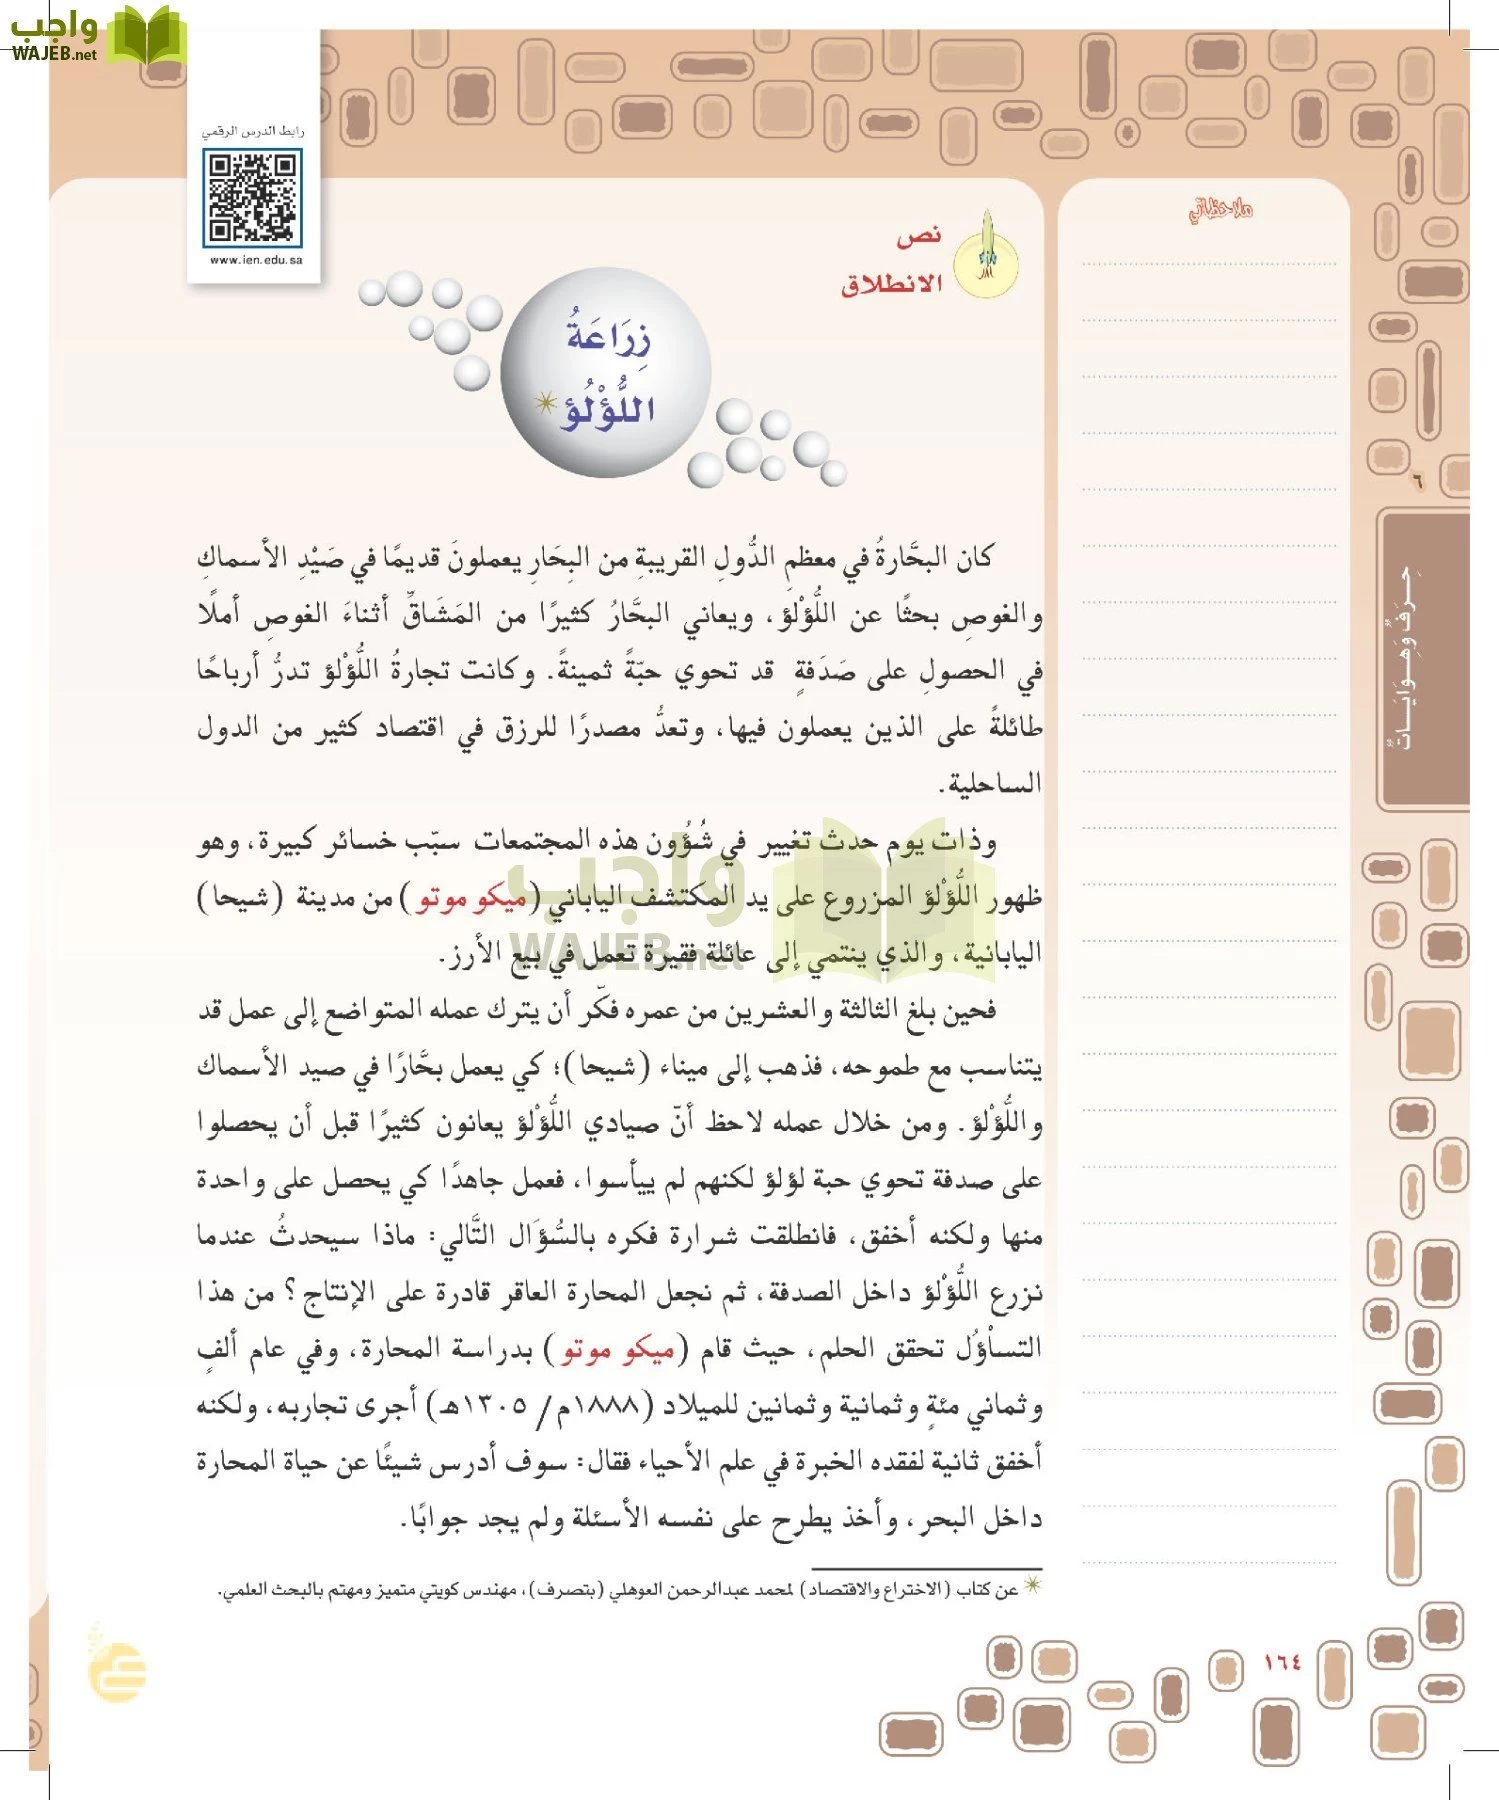 واجب
WAJEB.net
رابط الدرس الرقمي
www.ien.edu.sa
ملاحظاتي
نص
الانطلاق
زِرَاعَةُ
اللُّؤْلُؤِ
٦
حِرَفٌ وَهِوَايَاتٌ
كان البحَّارةُ في معظمِ الدُّولِ القريبةِ من البِحَارِ يعملونَ قديمًا في صَيْدِ الأسماكِ
والغوصِ بحثًا عن اللُّؤْلؤِ، ويعاني البحَّارُ كثيرًا من المَشَاقِّ أثناءَ الغوصِ أملًا
في الحصولِ على صَدَفةٍ قد تحوي حبّةً ثمينةً. وكانت تجارةُ اللُّؤْلؤ تدرُّ أرباحًا
طائلةً على الذين يعملون فيها، وتعدُّ مصدرًا للرزق في اقتصاد كثير من الدول
الساحلية.
وذات يوم حدث تغيير في شُؤُون هذه المجتمعات سبّب خسائر كبيرة، وهو
ظهور اللُّؤْلؤ المزروع على يد المكتشف الياباني (ميكو موتو) من مدينة (شيحا)
اليابانية، والذي ينتمي إلى عائلة فقيرة تعمل في بيع الأرز.
فحين بلغ الثالثة والعشرين من عمره فكّر أن يترك عمله المتواضع إلى عمل قد
يتناسب مع طموحه، فذهب إلى ميناء (شيحا)؛ كي يعمل بحَّارًا في صيد الأسماك
واللُّؤْلؤ. ومن خلال عمله لاحظ أنّ صيادي اللُّؤْلؤ يعانون كثيرًا قبل أن يحصلوا
على صدفة تحوي حبة لؤلؤ لكنهم لم ييأسوا، فعمل جاهدًا كي يحصل على واحدة
منها ولكنه أخفق، فانطلقت شرارة فكره بالسُّؤَال التَّالي: ماذا سيحدثُ عندما
نزرع اللُّؤْلؤ داخل الصدفة، ثم نجعل المحارة العاقر قادرة على الإنتاج؟ من هذا
التساْؤُل تحقق الحلم، حيث قام (ميكو موتو) بدراسة المحارة، وفي عام ألفٍ
وثماني مئةٍ وثمانية وثمانين للميلاد (١٨٨٨م/ ١٣٠٥هـ) أجرى تجاربه، ولكنه
أخفق ثانية لفقده الخبرة في علم الأحياء فقال: سوف أدرس شيئًا عن حياة المحارة
داخل البحر، وأخذ يطرح على نفسه الأسئلة ولم يجد جوابًا.
عن كتاب (الاختراع والاقتصاد) لمحمد عبدالرحمن العوهلي (بتصرف)، مهندس كويتي متميز ومهتم بالبحث العلمي.
١٦٤
واجب
WAJEB.net